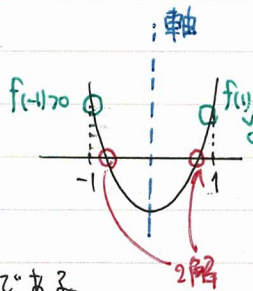 軸
f(-1)>0
f(1)
-1
1
2解
である